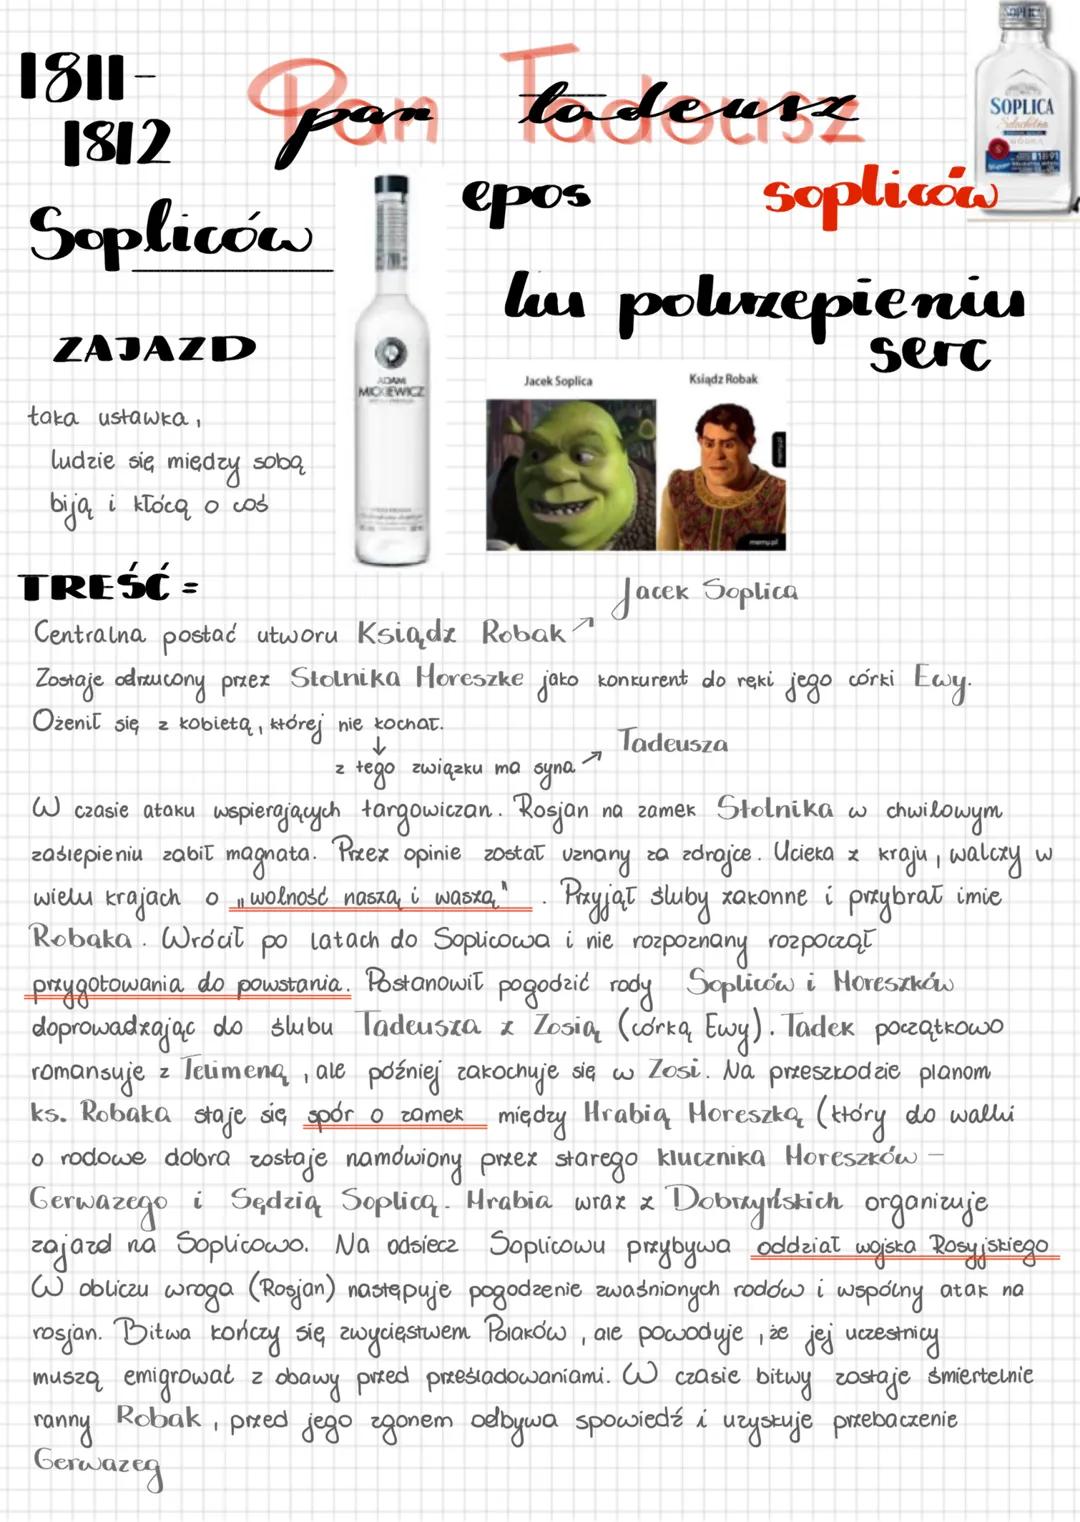 1811-
1812
Pan Tadeusz
pan tadeusz
SOPLICA
Szlachetna
WÓDKA
epos
sopliców
Sopliców
ku pokrzepieniu
serc
ZAJAZD
ADAM
MICKIEWICZ
Jacek Soplica
Ksiądz Robak
memy.pl
memy.pl
taka ustawka,
ludzie się między sobą
biją i kłócą o coś
TREŚĆ =
Jacek Soplica
Centralna postać utworu Ksiądz Robak ↗
Zostaje odrzucony przez Stolnika Horeszke jako konkurent do ręki jego córki Ewy.
Ożenił się z kobietą, której nie kochał.
↓
Tadeusza
z tego związku ma syna ↗
W czasie ataku wspierających targowiczan. Rosjan na zamek Stolnika w chwilowym
zaślepieniu zabił magnata. Przez opinie został uznany za zdrajce. Ucieka z kraju, walczy w
wielu krajach o „wolność naszą i waszą". Przyjął śluby zakonne i przybrał imie
Robaka. Wrócił po latach do Soplicowa i nie rozpoznany rozpoczął
przygotowania do powstania. Postanowił pogodzić rody Sopliców i Horeszków
doprowadzając do ślubu Tadeusza z Zosią (córką Ewy). Tadek początkowo
romansuje z Telimeną, ale później zakochuje się w Zosi. Na przeszkodzie planom
ks. Robaka staje się spór o zamek między Hrabią Horeszką (który do walki
o rodowe dobra zostaje namówiony przez starego klucznika Horeszków -
Gerwazego i Sędzią Soplicą. Hrabia wraz z Dobrzyńskich organizuje
zajazd na Soplicowo. Na odsiecz Soplicowu przybywa oddział wojska Rosyjskiego
W obliczu wroga (Rosjan) następuje pogodzenie zwaśnionych rodów i wspólny atak na
rosjan. Bitwa kończy się zwycięstwem Polaków, ale powoduje, że jej uczestnicy
muszą emigrować z obawy przed prześladowaniami. W czasie bitwy zostaje śmiertelnie
ranny Robak, przed jego zgonem odbywa spowiedź i uzyskuje przebaczenie
Gerwazeg